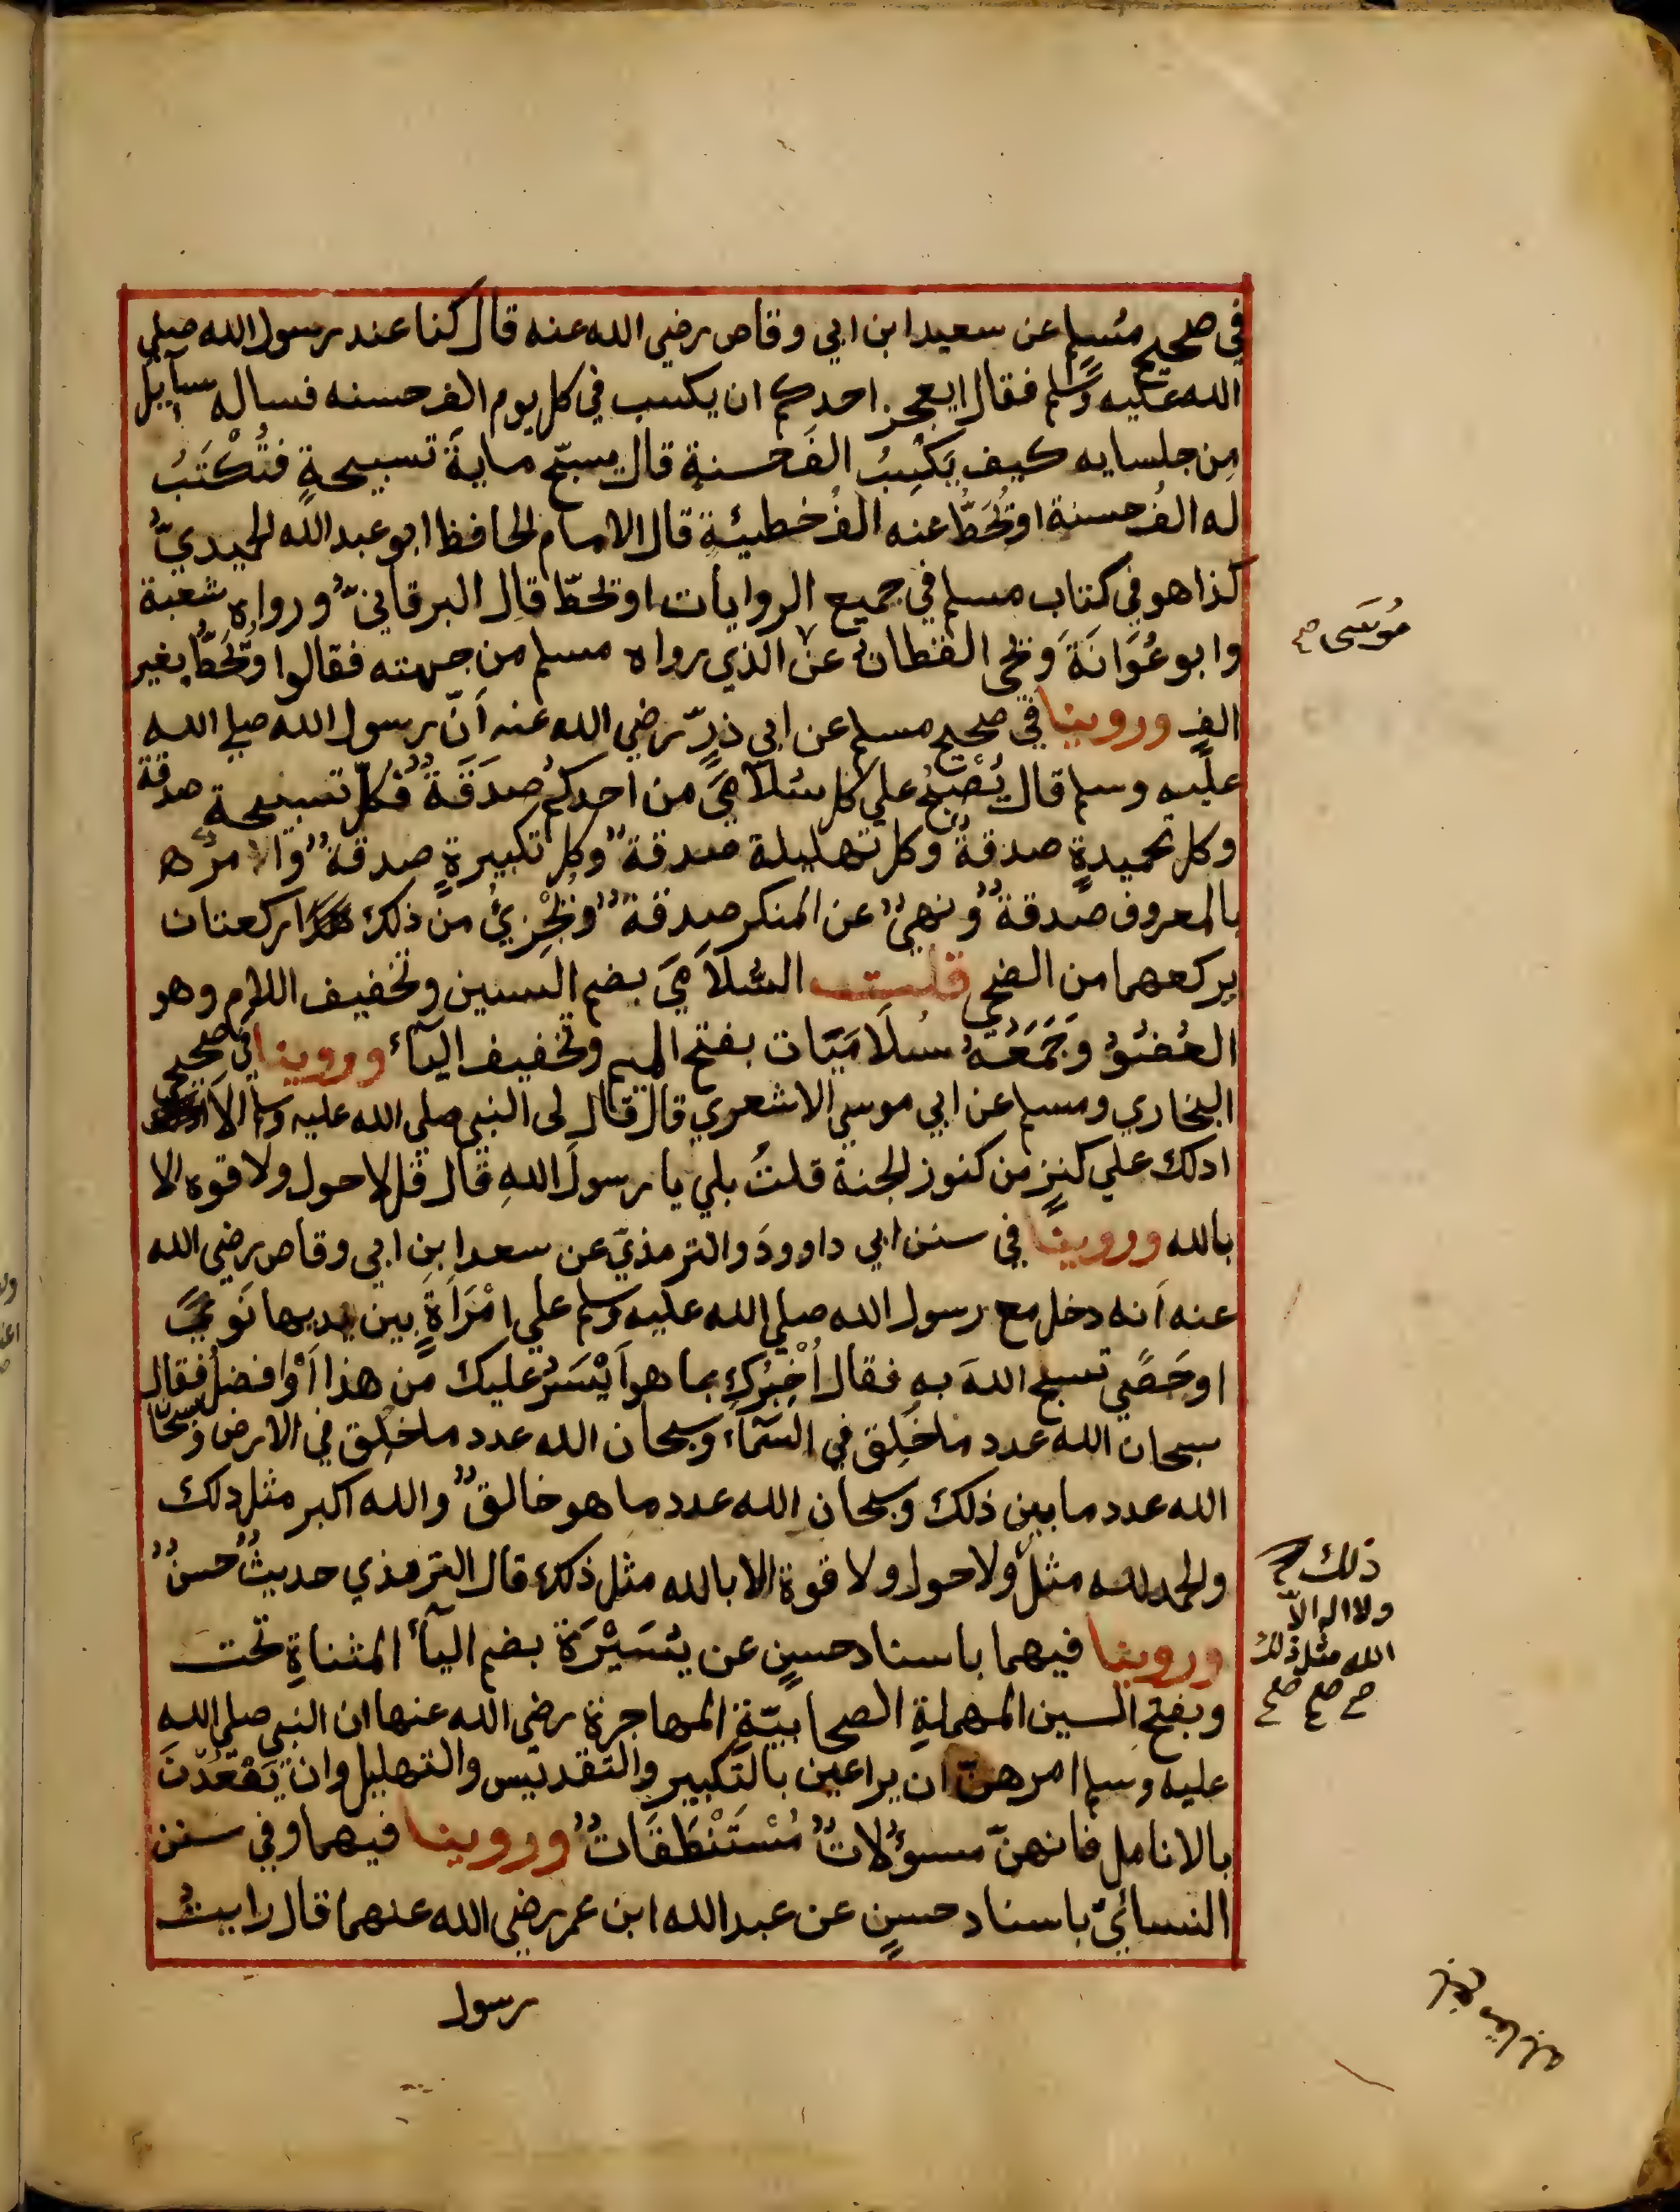 في صحيح مُسلم عن سعيد ابن ابي وقاص رضي الله عنه قال كنا عند رسول الله صلي
الله عليه وسلم فقال ايعجز احدكم ان يكسب في كل يوم الف حسنه فساله سآيل
مِن جلسايه كيف يَكْسِبُ الفَ حسنةٍ قال يسبّح مايةَ تسبيحةٍ فتُكْتَبُ
له الفُ حسنة اوتُحَطُّ عنه الفُ خطيئةٍ قال الامام الحافظ ابو عبد الله الحميديّ
كذا هو في كتاب مسلم في جميع الروايات اوتحطّ قال البرقانيّ ورواه شعبة
وابو عُوَانَةَ وَيحي القطان عن الذي رواه مسلم من جهته فقالوا وتُحَطُّ بغير
موُسَى صح
الفٍ وروينا في صحيح مسلم عن ابي ذرٍّ رضي الله عنه اَنّ رسول الله صلي الله
عليه وسلم قال يُصْبحُ علي كل سُلَامَيَ من احدكم صَدَقَةٌ فكلّ تسبيحة صدقة
وكل تحميدةٍ صدقةٌ وكل تهليلة صدقةٌ وكل تكبيرةٍ صدقةٌ والامرُه
بالمعروف صدقةٌ ونهيٌ عن المنكر صدقةٌ وتُجْزِئُ من ذلك ركعتان
يركعهما من الضحي قلت السُّلاَمَيَ بضم السين وتخفيف اللام وهو
العُضْوُ وَجَمَعَهُ سُلَامَيَات بفتح الميم وتخفيف اليآء وروينا في صحيحي
البخاري ومسلم عن ابي موسي الاشعري قال قال لى النبي صلي الله عليه وسلم الاَ
ادلك علي كنزٍ من كنوز الجنة قلتُ بلي يا رسولَ اللهِ قال قل لا حول ولا قوه الا
بالله وروينا في سنن ابي داوودَ والترمذيّ عن سعد ابنِ ابي وقاص رضي الله
عنه اَنه دخل مع رسول الله صلي الله عليه وسلم علي امْرَاَةٍ بين يديها نَويً
اوحَصًي تسبح اللهَ بهِ فقال اُخْبِرُكِ بما هو اَيْسَرُ عليك من هذا اَوْ افضلُ فقال
سبحان الله عدد ما خَلِق في السّمآء وسبحان الله عدد ما خلِق في الارض وسبحان
الله عدد ما بين ذلك وسبحان الله عدد ما هو خالقٌ والله اكبر مثل ذلك
والحمد لله مثل ولا حول ولا قوة الا بالله مثل ذلك قال الترمذي حديثٌ حسنٌ
ذلك صح
ولا اله الاّ
الله مثل ذلك
صح صح صح
وروينا فيهما باسناد حسنٍ عن يُسَيْرَة بضم اليآء المثناةِ تحت
وبفتح السين المهملةِ الصحابيّةِ المهاجرة رضي الله عنها ان النبي صلي الله
عليه وسلم امرهنّ ان يراعين بالتكبير والتقديس والتهليل وان يَعْقِدْنَ
بالانامل فانهنّ مسوُلاتٌ مُسْتَنْطَقَاتٌ وروينا فيهما وفي سنن
النسائيّ باسناد حسنٍ عن عبد الله ابن عمر رضي الله عنهما قال رايتُ
رسول